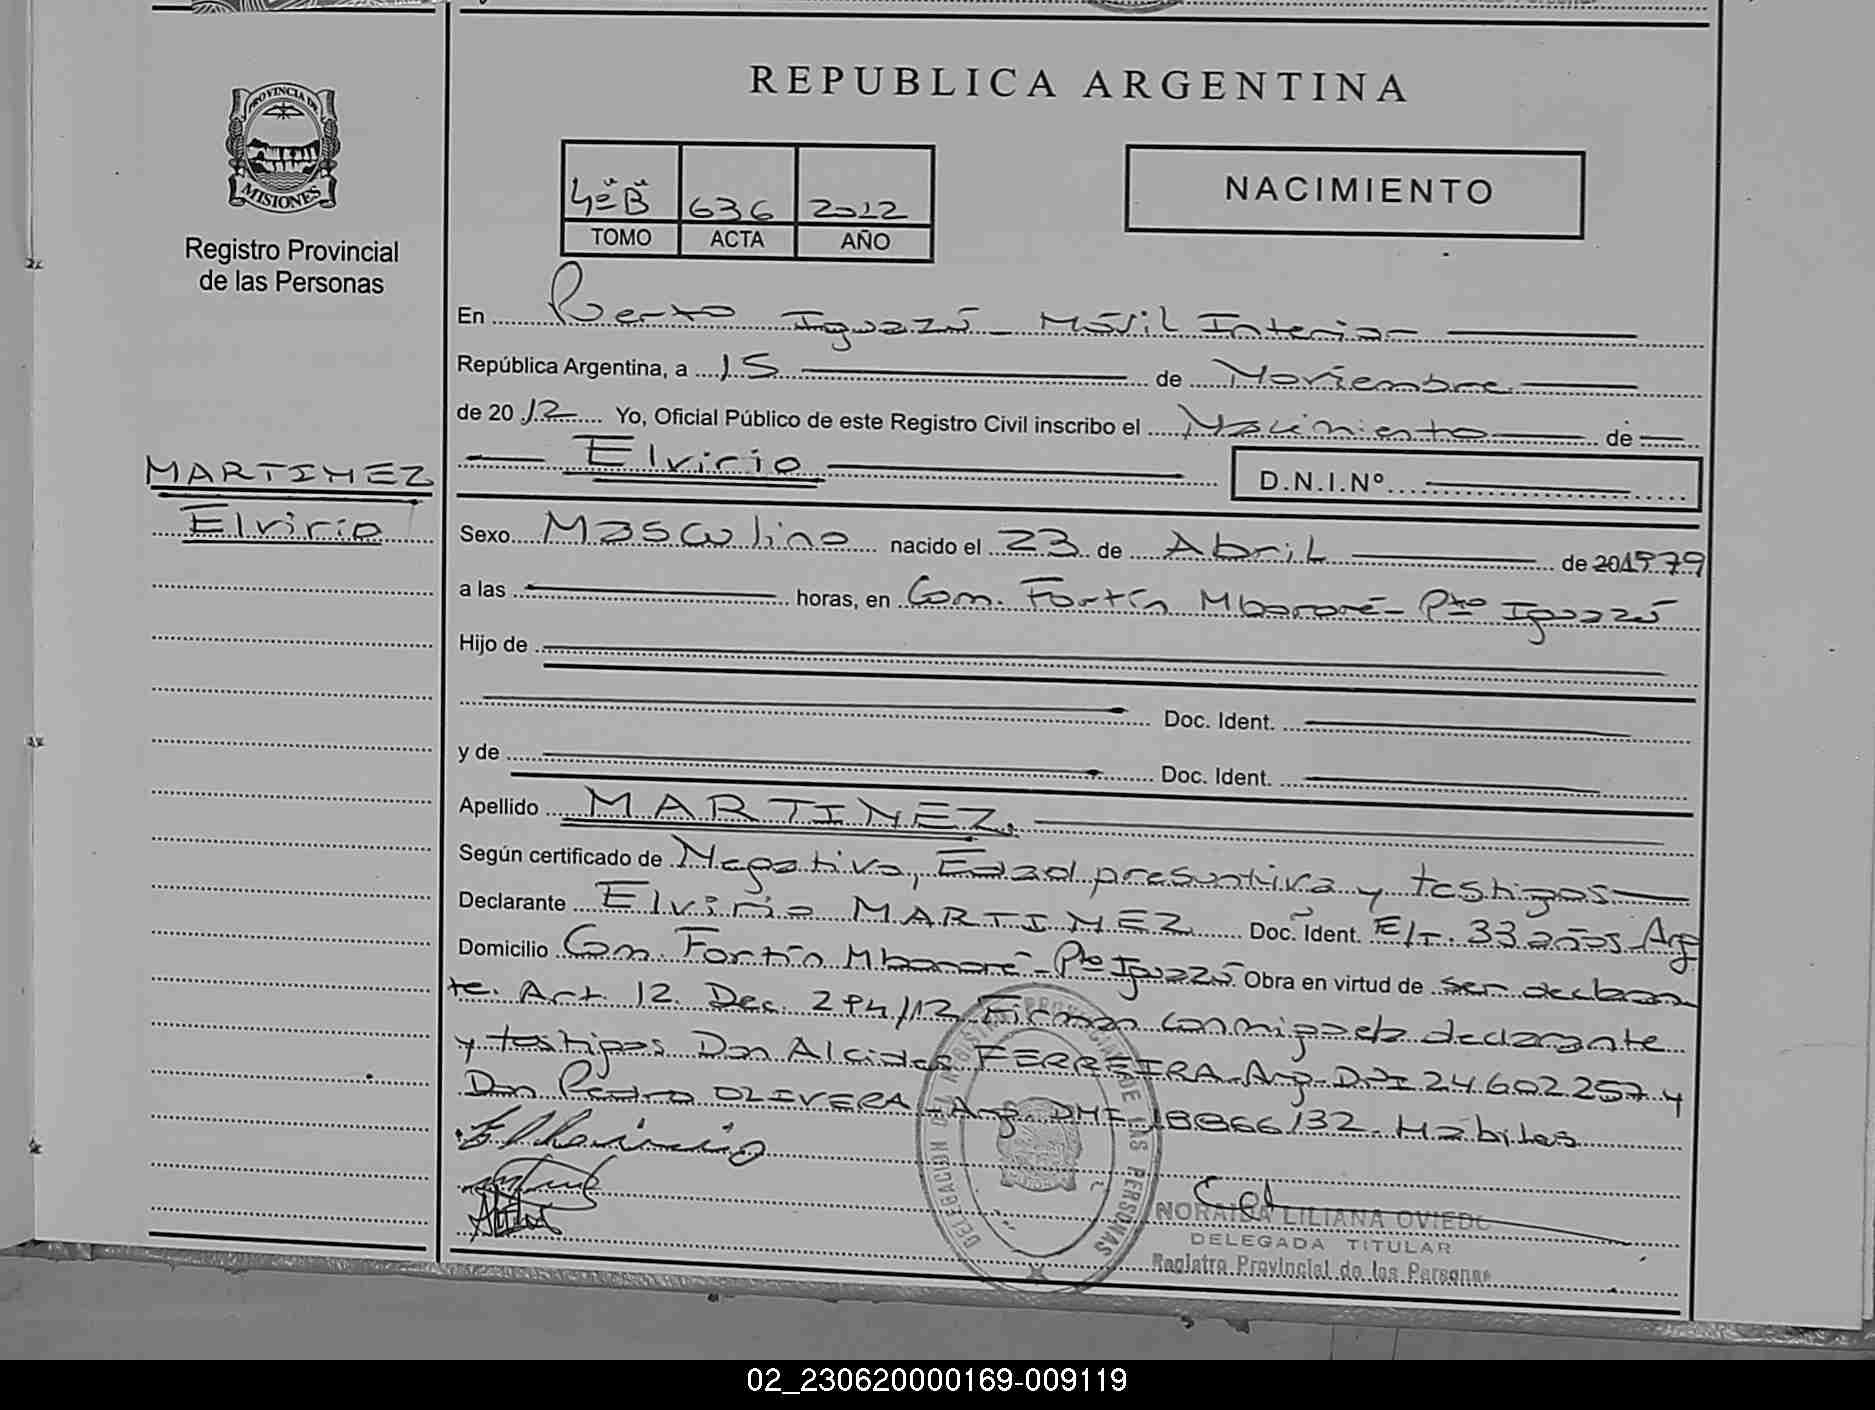 REPUBLICA ARGENTINA
PROVINCIA DE
MISIONES
Registro Provincial
de las Personas
4º "B" 636 2012
TOMO ACTA AÑO
NACIMIENTO
En Puerto Iguazú - Móvil Interior
República Argentina, a 15 de Noviembre
de 2012 Yo, Oficial Público de este Registro Civil inscribo el Nacimiento de
Elvirio D.N.I.Nº
MARTINEZ
Elvirio
Sexo Masculino nacido el 23 de Abril de 201979
a las horas, en Com. Fortín Mbororé - Pto Iguazú
Hijo de
Doc. Ident.
y de Doc. Ident.
Apellido MARTINEZ.
Según certificado de Negativo, Edad presuntiva y testigos
Declarante Elvirio MARTINEZ Doc. Ident. E/T. 33 años Arg
Domicilio Com. Fortín Mbororé - Pto Iguazú Obra en virtud de ser declaran
te. Art. 12. Dec. 294/12 Firman conmigo el declarante
y testigos Don Alcides FERREIRA Arg. DNI 24.602.257 y
Don Pedro OLIVERA - Arg. DNI 18866132. Hábiles
DELEGACION DEL REGISTRO PROVINCIAL DE LAS PERSONAS
NORAIDA LILIANA OVIEDO
DELEGADA TITULAR
Registro Provincial de las Personas
02_230620000169-009119